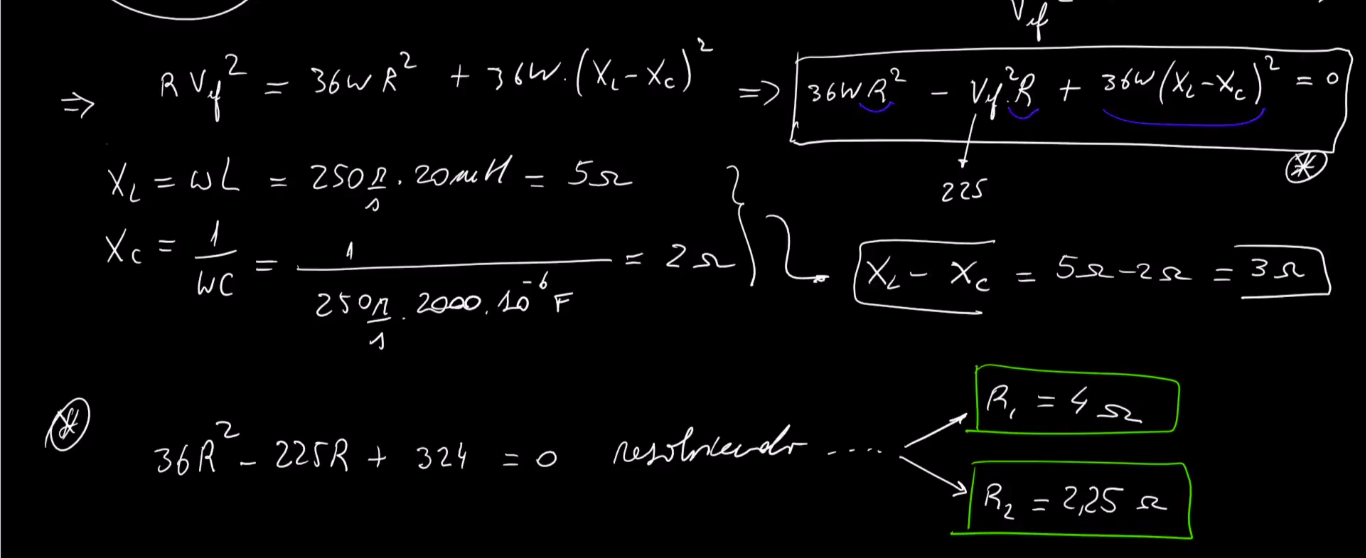 V_ef
⇒ R V_ef² = 36W R² + 36W·(X_L − X_C)² ⇒ 36W R² − V_ef²·R + 36W(X_L − X_C)² = 0
225
X_L = ωL = 250 r/s · 20mH = 5Ω
X_C = 1/(ωC) = 1/(250 r/s · 2000·10⁻⁶ F) = 2Ω
X_L − X_C = 5Ω − 2Ω = 3Ω
36R² − 225R + 324 = 0 resolviendo ....
R₁ = 4Ω
R₂ = 2,25 Ω